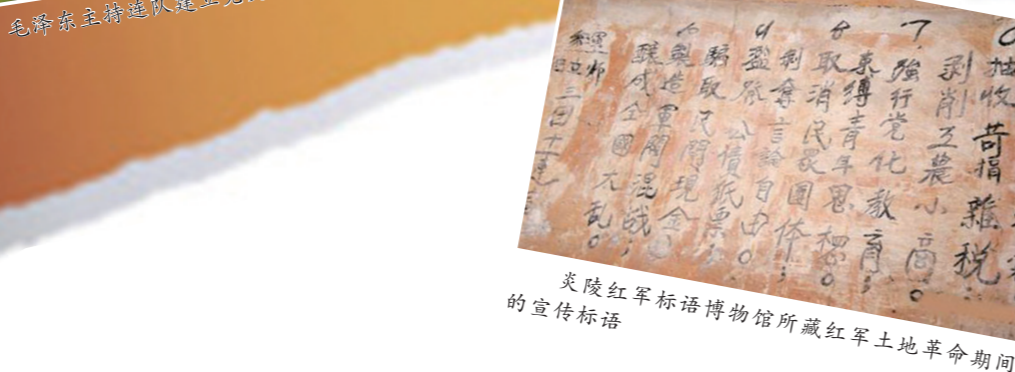 毛泽东主持连队建立党
抽收苛捐雜稅；
剥削工農小商。
7 強行党化教育；
束縛青年思想。
8 取消民眾團体；
剥奪言論自由。
9 公債紙票；
騙取民間現金。
製造軍閥混战；
釀成全國大乱。
炎陵红军标语博物馆所藏红军土地革命期间
的宣传标语